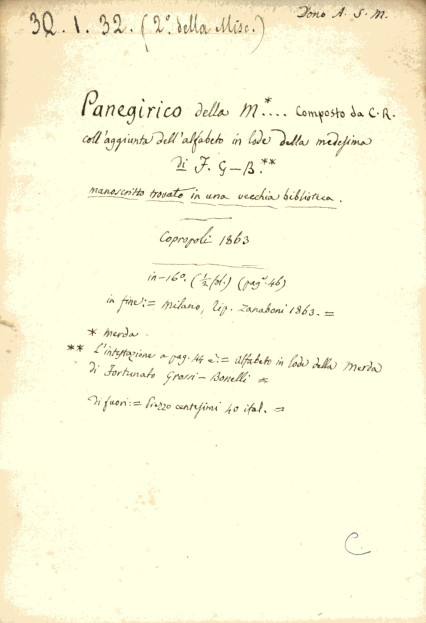 32.1.32. (2º. della Misc.)
Dono A. S. M.
Panegirico della M*.... Composto da C. R.
coll'aggiunta dell'alfabeto in lode della medesima
di F. G–B.**
manoscritto trovato in una vecchia biblioteca.
Copropoli 1863
in-16º. (½ fol.) (pagº. 46)
in fine: = Milano, tip. Zanaboni 1863. =
* merda.
** L'intestazione a pag. 44 è: = alfabeto in lode della Merda
di Fortunato Grossi-Bonelli =
di fuori: = Prezzo centesimi 40 ital. =
C.